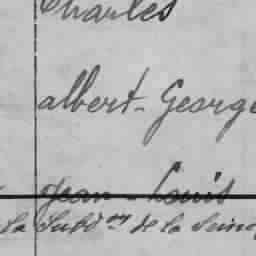 Charles
albert-George
Jean-Louis
la Subd on de la Seine